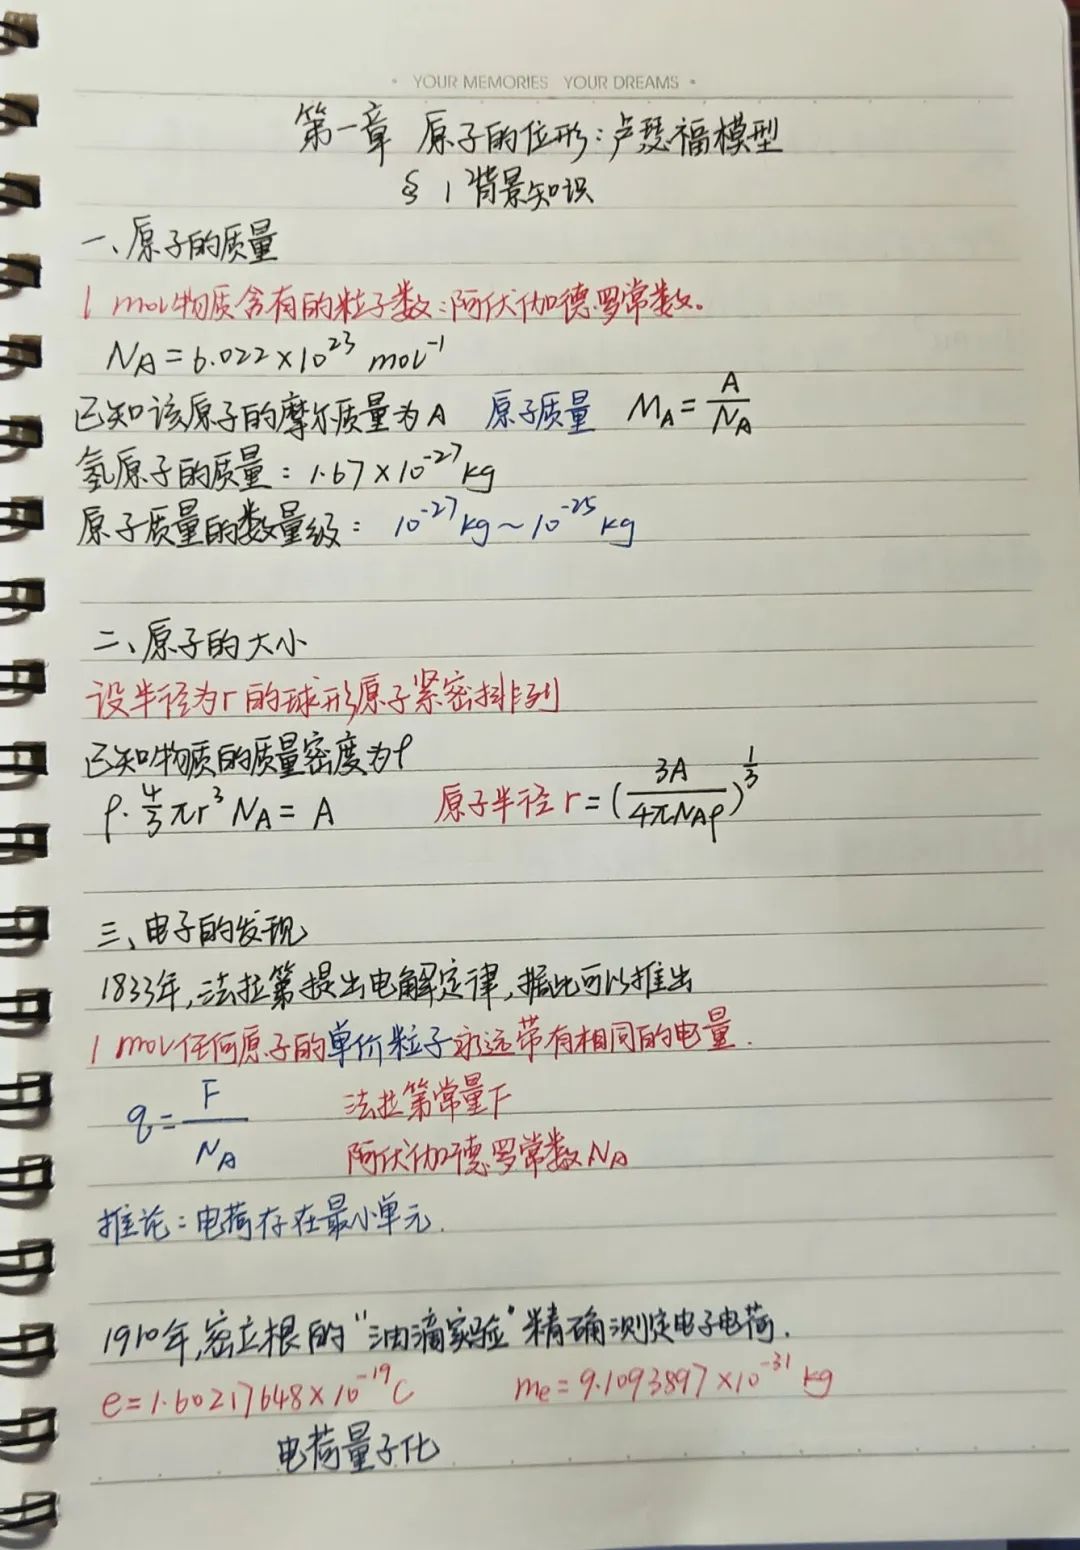 • YOUR MEMORIES YOUR DREAMS •
第一章 原子的位形:卢瑟福模型
§1 背景知识
一、原子的质量
1 mol物质含有的粒子数:阿伏伽德罗常数。
N_A=6.022×10^23 mol^-1
已知该原子的摩尔质量为A 原子质量 M_A=A/N_A
氢原子的质量:1.67×10^-27kg
原子质量的数量级:10^-27kg~10^-25kg
二、原子的大小
设半径为r的球形原子紧密排列
已知物质的质量密度为ρ
ρ·4/3πr^3N_A=A 原子半径r=(3A/4πN_Aρ)^1/3
三、电子的发现
1833年,法拉第提出电解定律,据此可以推出
1 mol任何原子的单价粒子永远带有相同的电量.
q=F/N_A 法拉第常量F
阿伏伽德罗常数N_A
推论:电荷存在最小单元.
1910年,密立根的“油滴实验”精确测定电子电荷.
e=1.60217648×10^-19C m_e=9.1093897×10^-31kg
电荷量子化